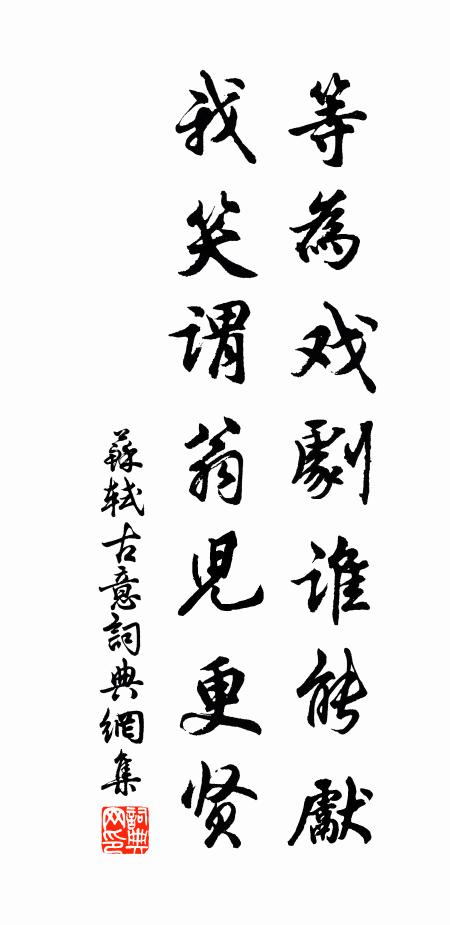 等為戏劇谁能獻
我笑谓翁児更贤
蘇轼古意詞典網集
詞典
网印